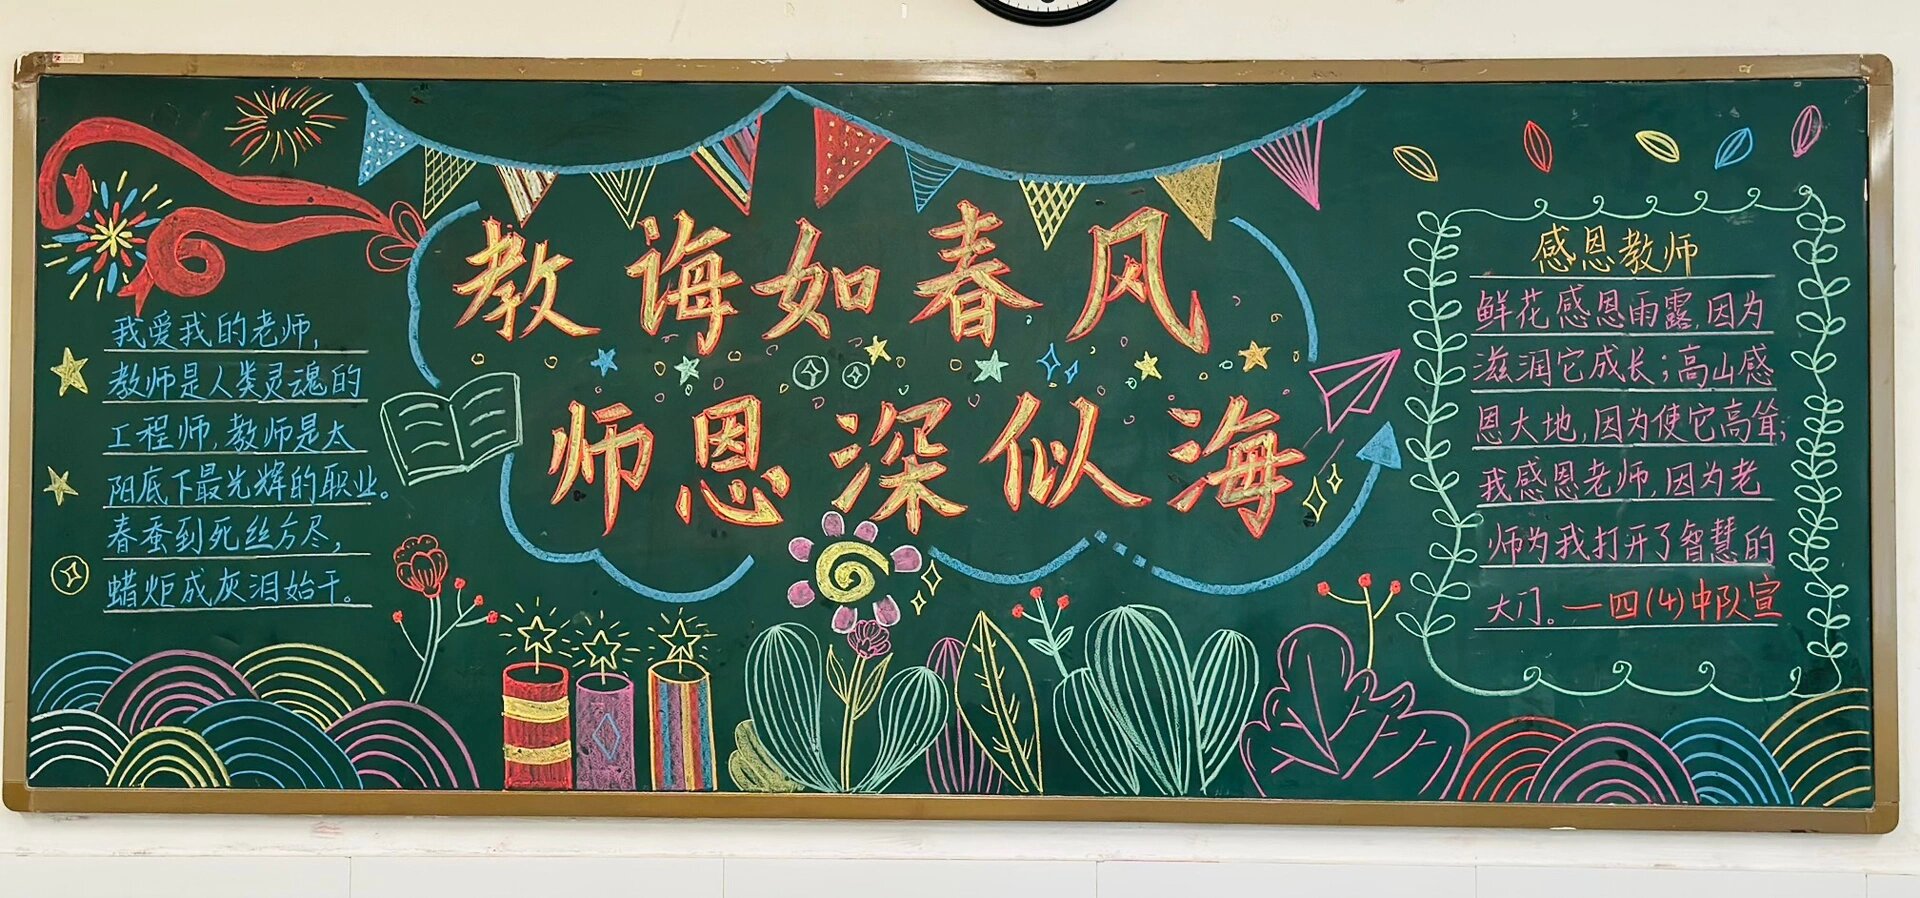 教诲如春风
师恩深似海
我爱我的老师，
教师是人类灵魂的
工程师，教师是太
阳底下最光辉的职业。
春蚕到死丝方尽，
蜡炬成灰泪始干。
感恩教师
鲜花感恩雨露，因为
滋润它成长；高山感
恩大地，因为使它高耸；
我感恩老师，因为老
师为我打开了智慧的
大门。—四(4)中队宣